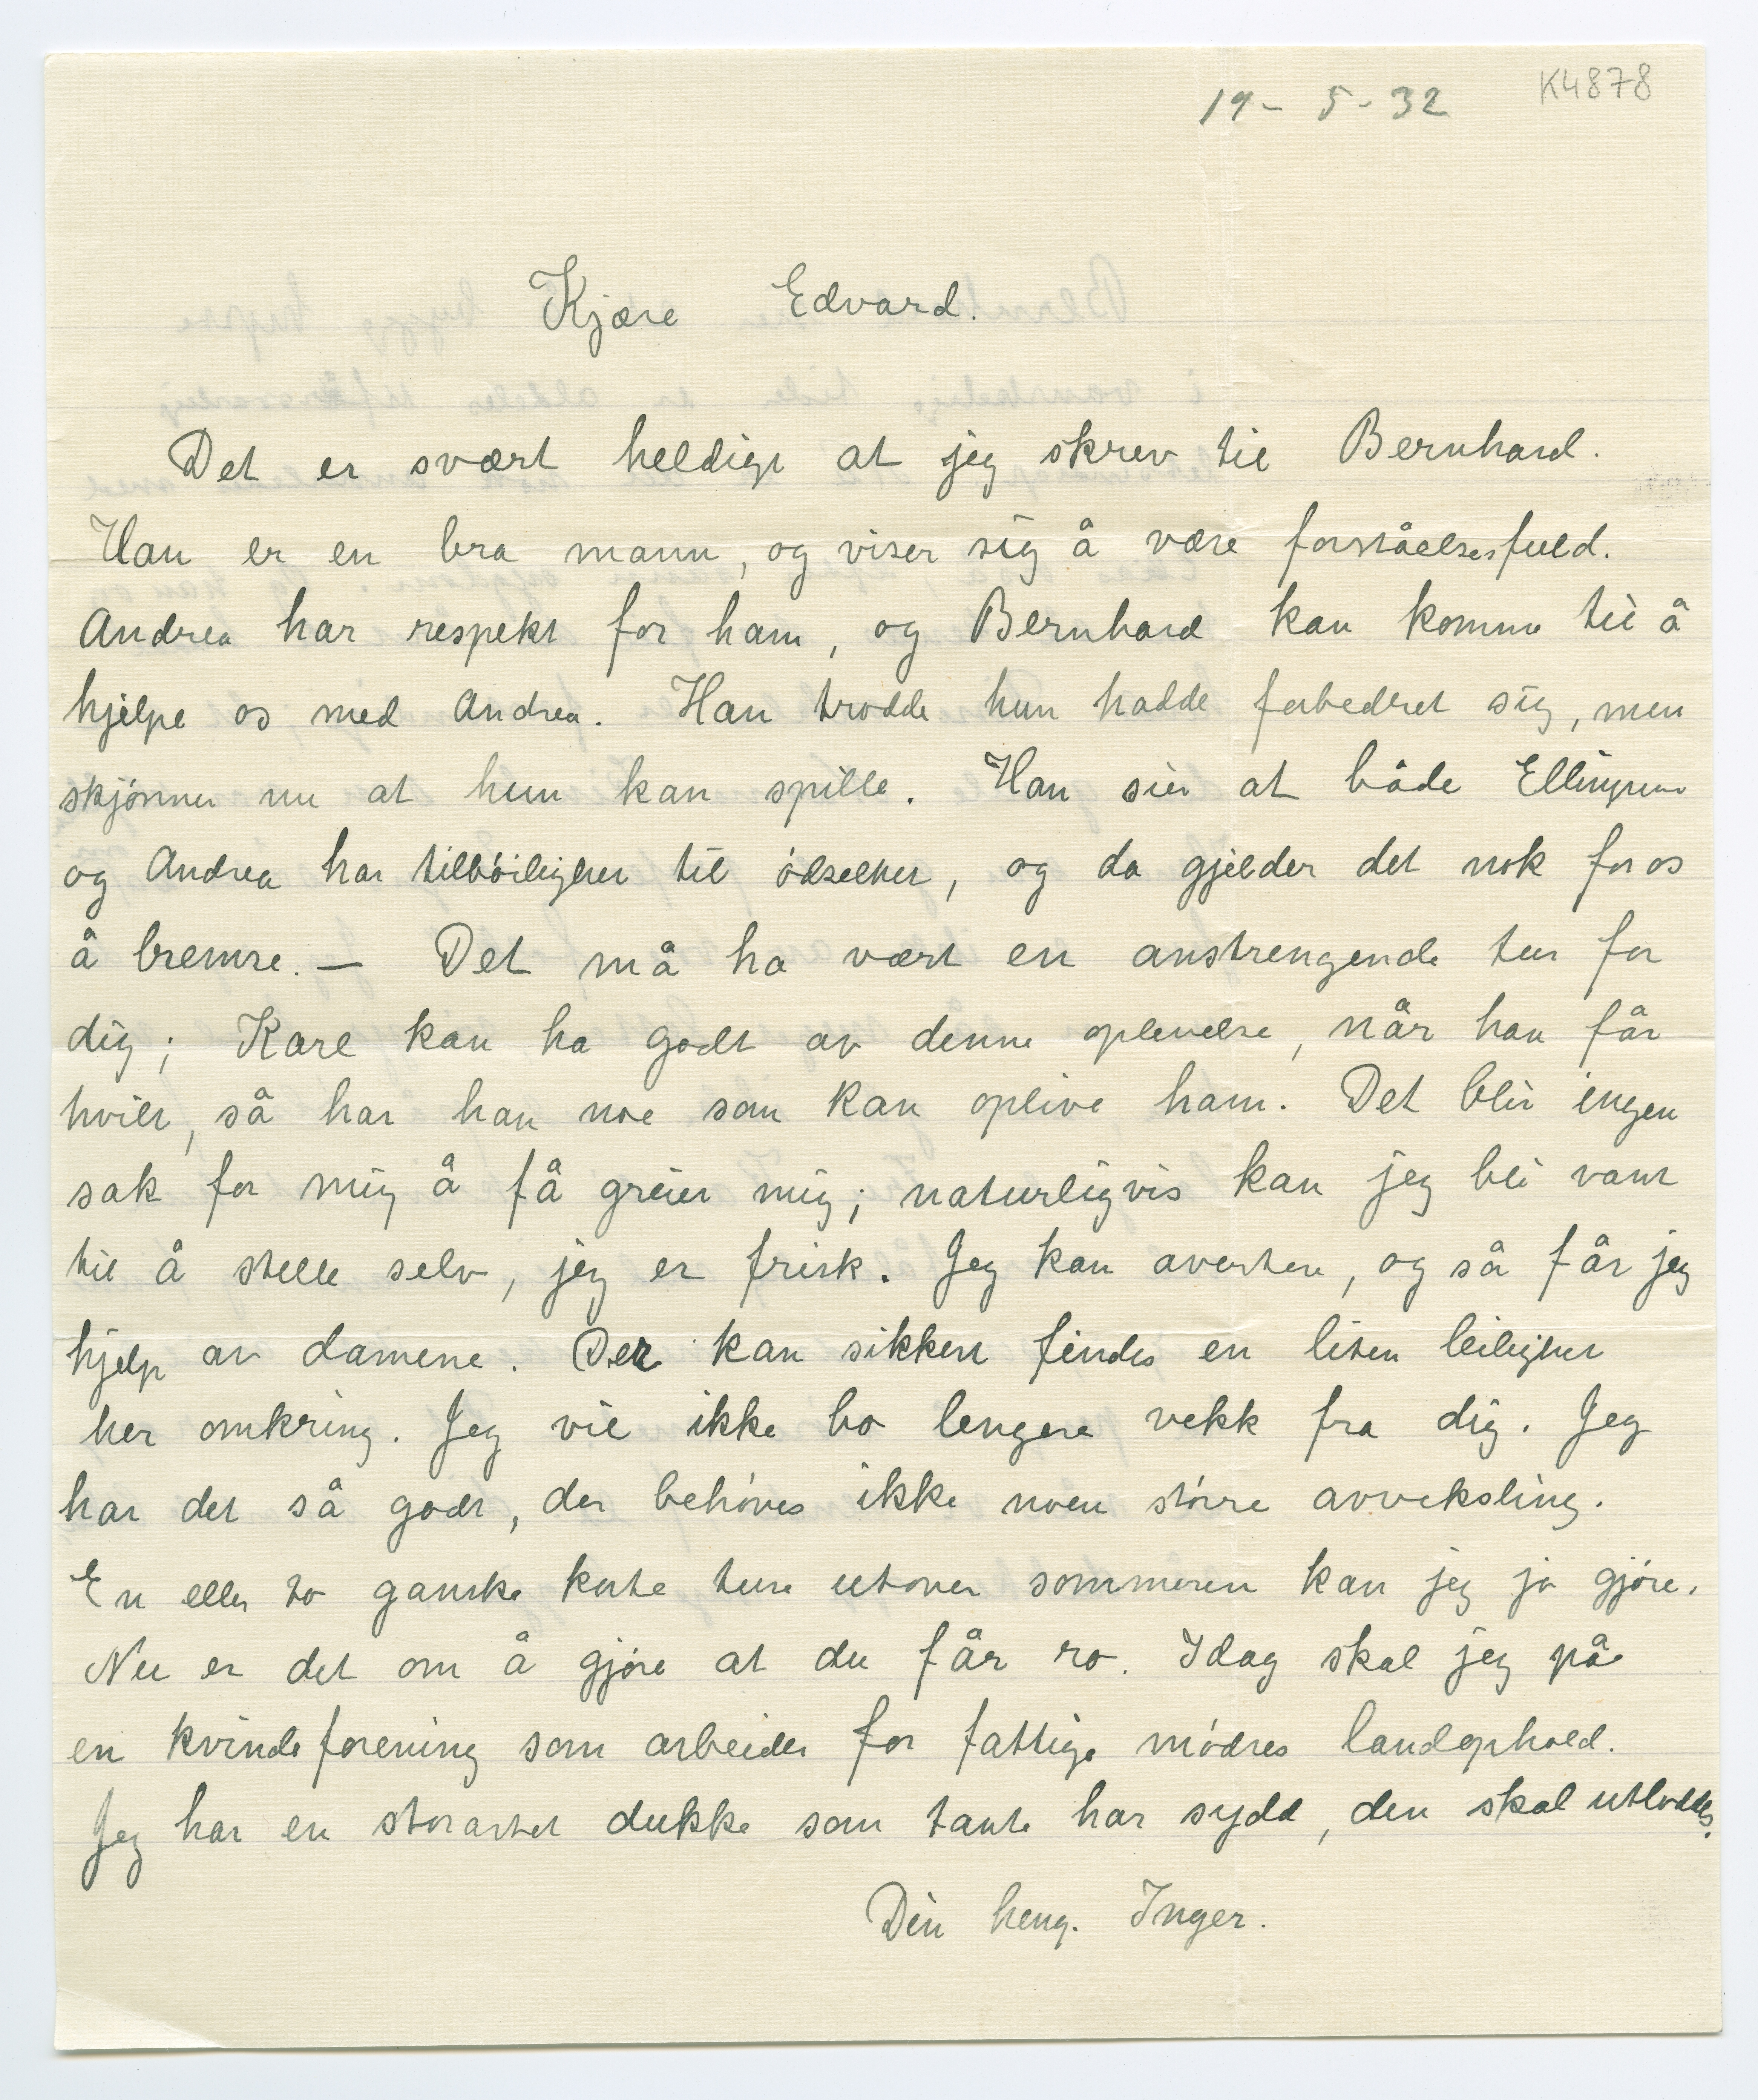 19- 5- 32
K4878
Kjære Edvard.
Det er svært heldigt at jeg skrev til Bernhard.
Han er en bra mann, og viser sig å være forståelsesfuld.
Andrea har respekt for ham, og Bernhard kan komme til å
hjelpe os med Andrea. Han trodde hun hadde forbedret sig, men
skjønner nu at hun kan spille. Han sier at både
og Andrea har tilbøiligher til ødselhet, og da gjelder det nok for os
å bremse. — Det må ha vært en anstrengende tur for
dig; Karl kan ha godt av denne oplevelse, når han får
hvilt, så har han noe som kan oplive ham. Det blir ingen
sak for mig å få greiet mig; naturligvis kan jeg bli vant
til å stelle selv, jeg er frisk. Jeg kan avertere, og så får jeg
hjelp av damene. Der kan sikkert findes en liten leilighet
her omkring. Jeg vil ikke bo lengere vekk fra dig. Jeg
har det så godt, der behøves ikke noen større avveksling.
En eller to ganske korte ture utover sommeren kan jeg jo gjøre.
Nu er det om å gjøre at du får ro. Idag skal jeg på
en kvindeforening som arbeider for fattige mødres landophold.
Jeg har en storartet dukke som tante har sydd, den skal utloddes.
Din heng. Inger.